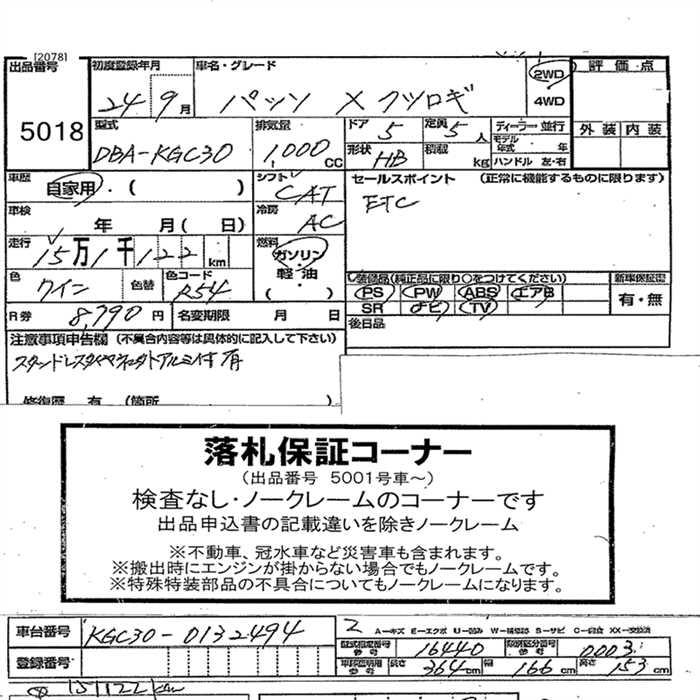 [2078]
出品番号 初度登録年月 車名・グレード 2WD 評価点
5018 24 9月 パッソ X クツロギ 4WD
型式 排気量 ドア 定員 ディーラー 並行 外装 内装
DBA-KGC30 1,000CC 5 5人 モデル年式 年
形状 積載 ハンドル 左・右
HB kg
車歴 自家用・( ) シフト CAT セールスポイント (正常に機能するものに限ります)
ETC
車検 年 月( 日) 冷房 AC
走行 15万1千122km 燃料 ガソリン・軽油・( )
色 ワイン 色替 色コード R54 装備品(純正品に限り○をつけてください) 新車保証書
PS PW ABS エアB 有・無
R券 8,790円 名変期限 月 日 SR ナビ TV
後日品
注意事項申告欄 (不具合内容等は具体的に記入して下さい)
スタッドレスタイヤ アルミ付 有
修復歴 有 (箇所
落札保証コーナー
(出品番号 5001号車~)
検査なし・ノークレームのコーナーです
出品申込書の記載違いを除きノークレーム
※不動車、冠水車など災害車も含まれます。
※搬出時にエンジンが掛からない場合でもノークレームです。
※特殊特装部品の不具合についてもノークレームになります。
車台番号 KGC30-0132494
A-キズ E-エクボ U-凹み W-補修跡 S-サビ C-腐食 XX-交換済
型式指定番号 参考 16440 類別区分番号 参考 0003
登録番号 車検証明用 参考 長さ 364cm 幅 166cm 高さ 153cm
151122km